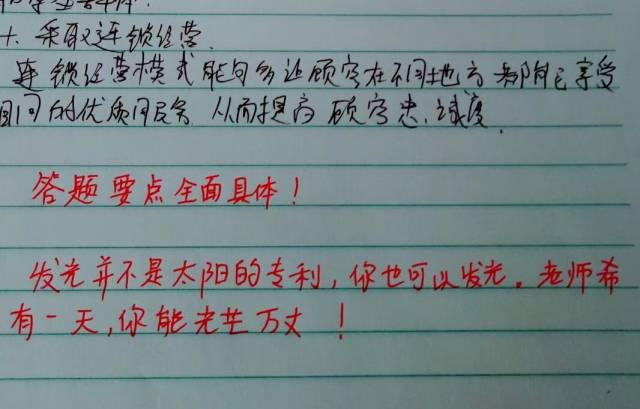 十、采取连锁经营.
连锁经营模式能够多让顾客在不同地方都能享受
同的优质服务 从而提高顾客忠诚度.
答题要点全面具体！
发光并不是太阳的专利，你也可以发光。老师希
有一天，你能光芒万丈！